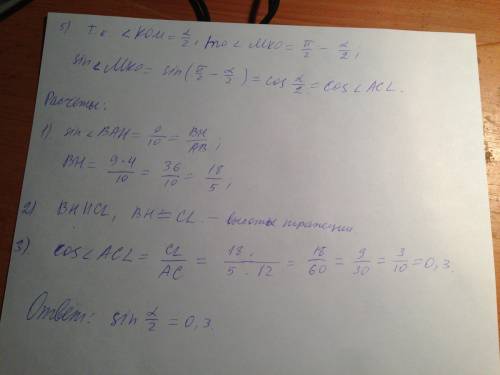 5) Т.к ∠KOM = α/2, то ∠MKO = π/2 − α/2;
sin∠MKO = sin(π/2 − α/2) = cos α/2 = cos∠ACL.
Расчеты:
1) sin∠BAH = 9/10 = BH/AB;
BH = 9·4/10 = 36/10 = 18/5;
2) BH∥CL, BH = CL – высоты трапеции
3). cos∠ACL = CL/AC = 18/5·12 = 18/60 = 9/30 = 3/10 = 0,3.
Ответ: sin α/2 = 0,3.